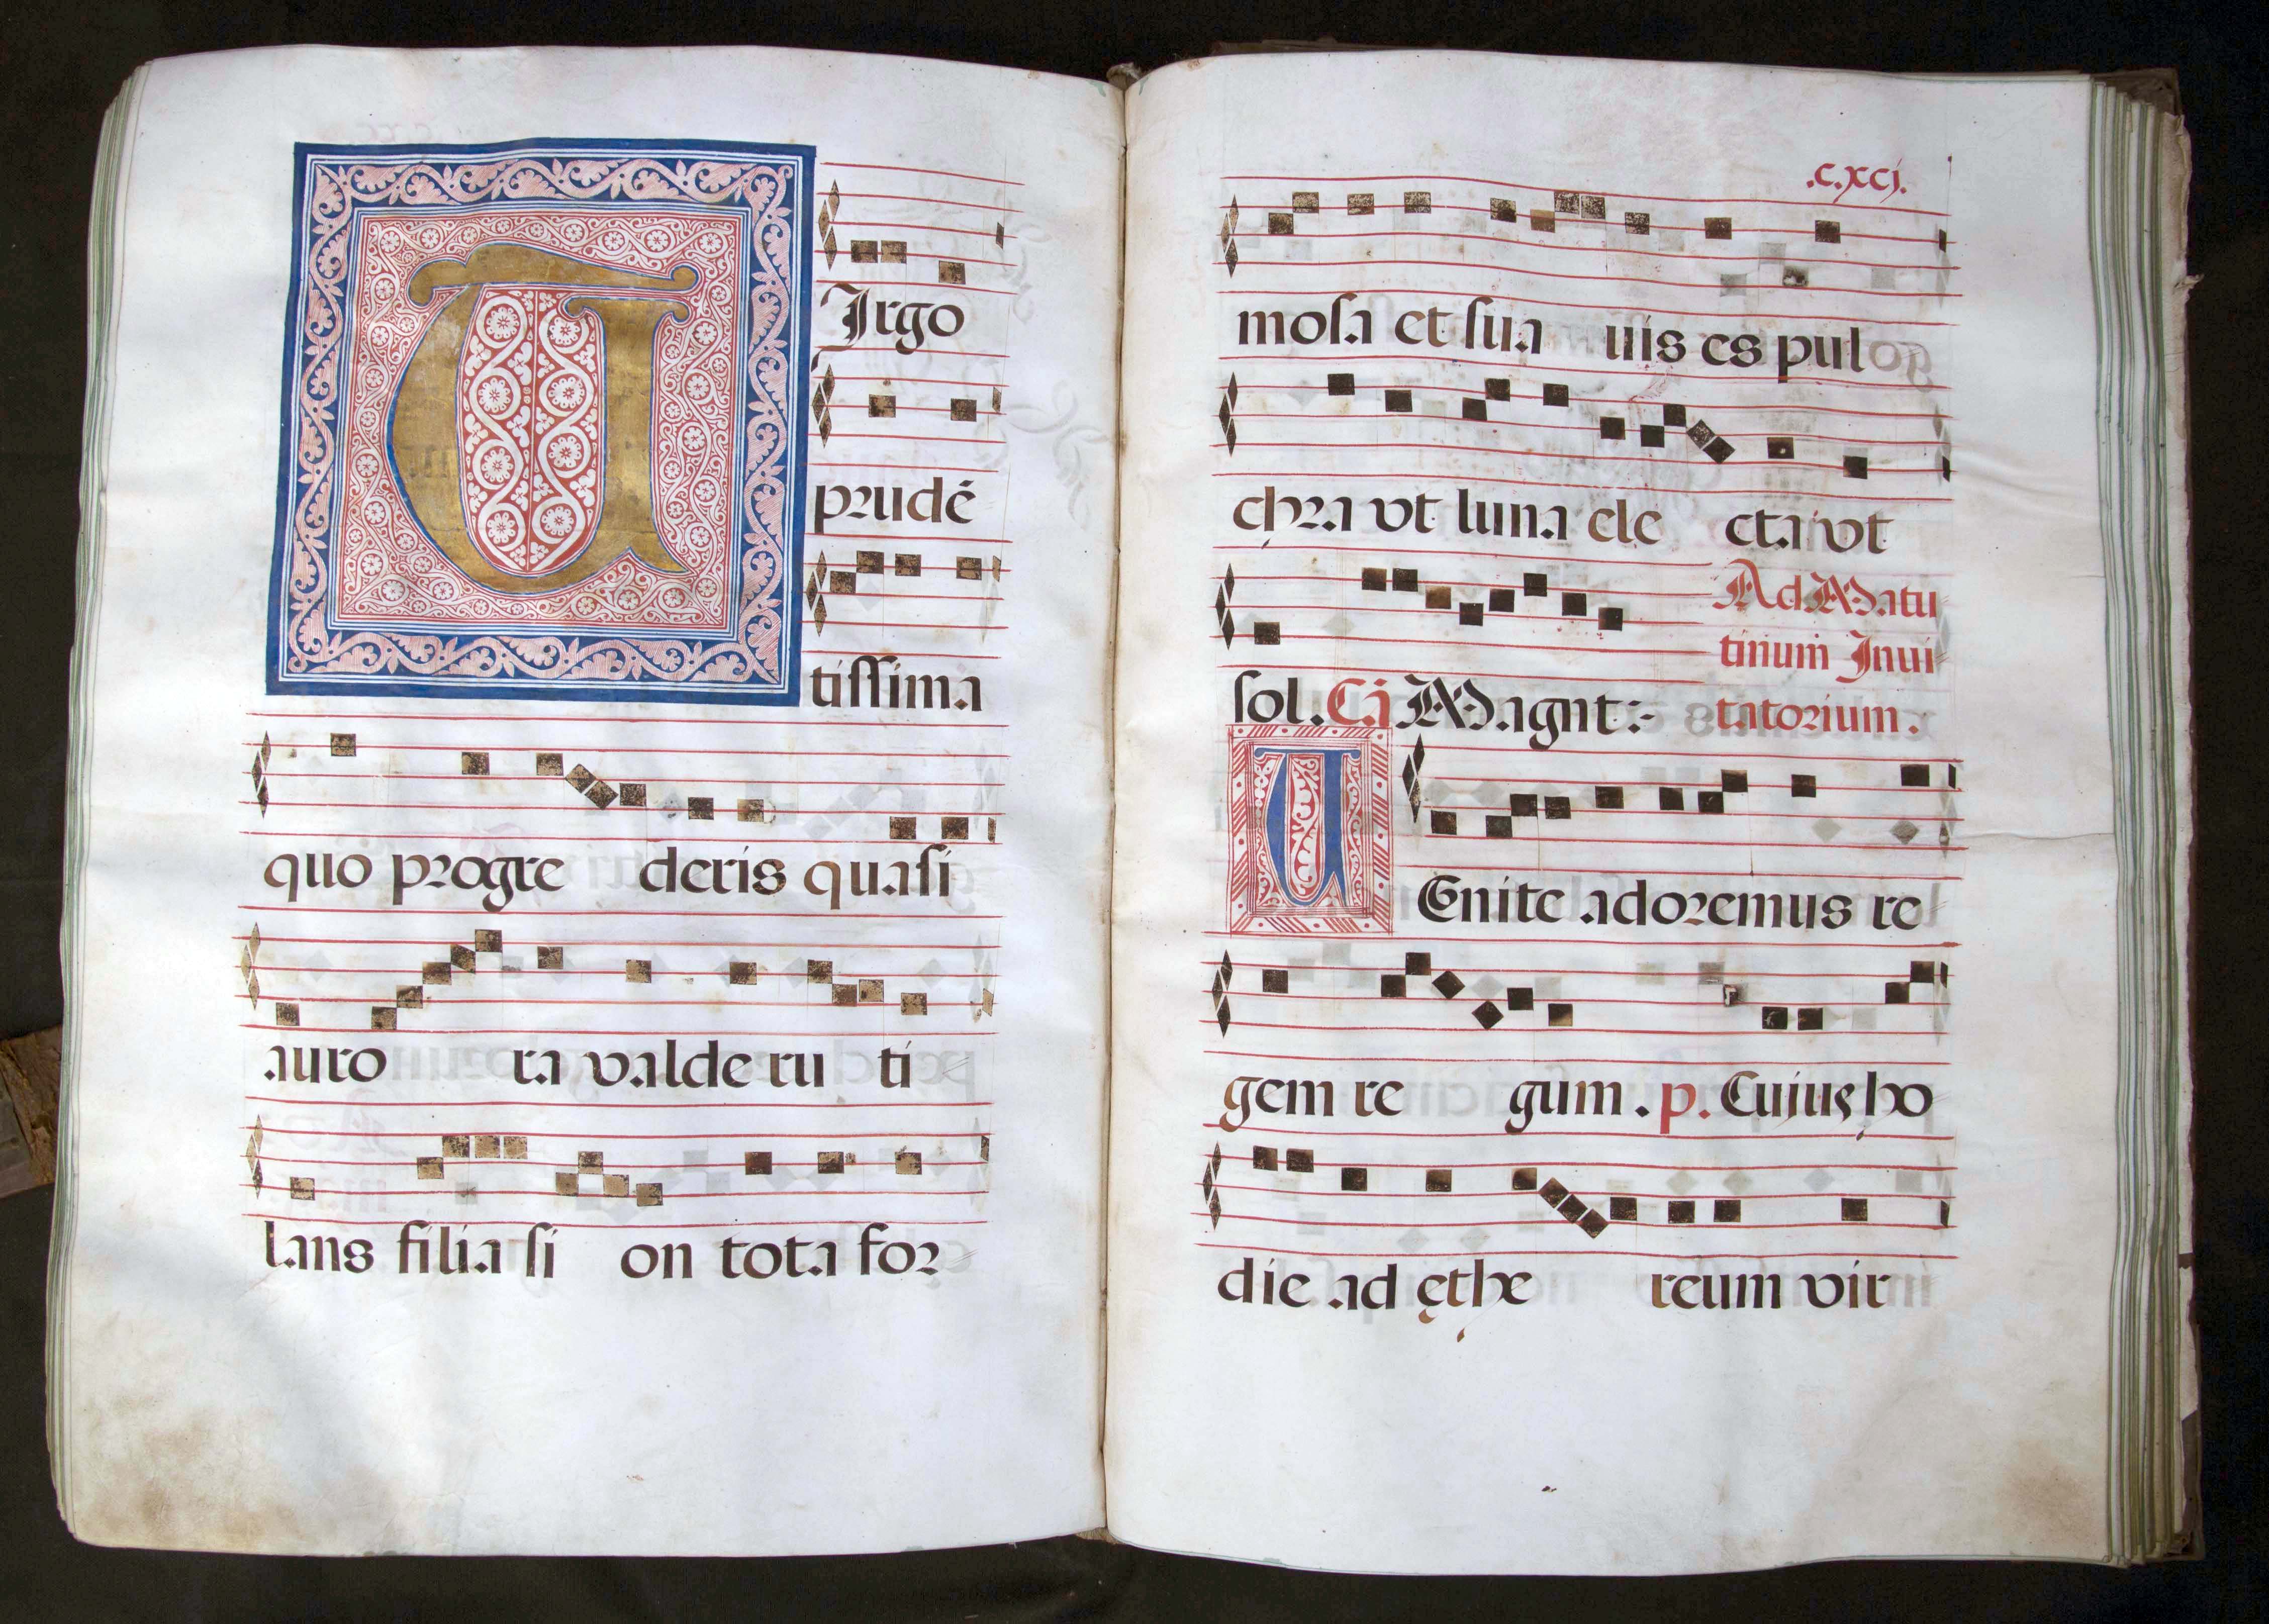 VIrgo
prudē
tissima
quo progre deris quasi
auro ra valde ru ti
lans filia si on tota for
.c.xcj.
mosa et sua uis es pul
chra vt luna ele cta vt
Ad Matu
tinum Inui
sol. Cā Magnt:
tatorium.
VEnite adoremus re
gem re gum. p. Cujus ho
die ad ęthe reum vir